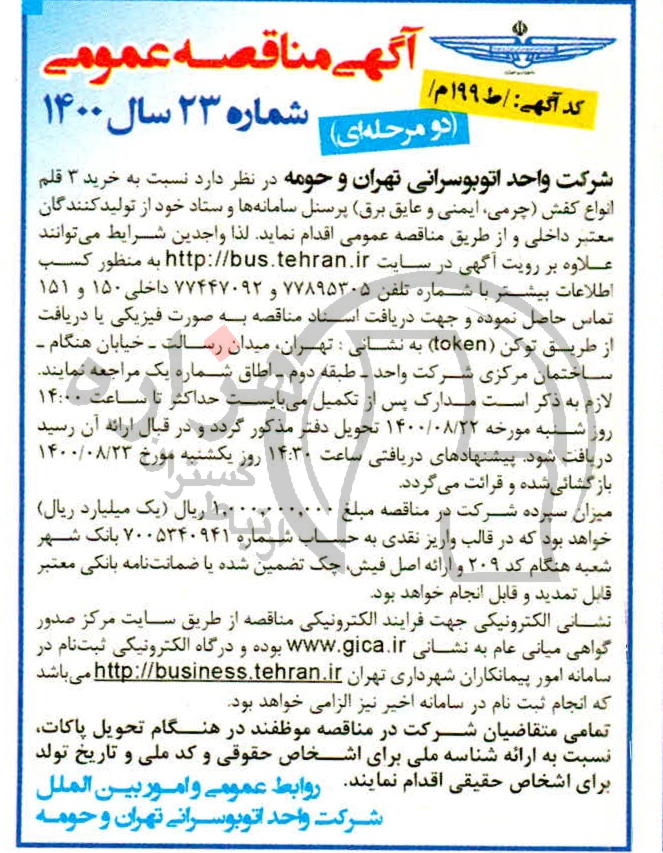 آگهی مناقصه عمومی
شماره ۲۳ سال ۱۴۰۰
کد آگهی: /ط ۱۹۹م/
(دو مرحله‌ای)
شرکت واحد اتوبوسرانی تهران و حومه در نظر دارد نسبت به خرید ۳ قلم
انواع کفش (چرمی، ایمنی و عایق برق) پرسنل سامانه‌ها و ستاد خود از تولیدکنندگان
معتبر داخلی و از طریق مناقصه عمومی اقدام نماید. لذا واجدین شرایط می‌توانند
علاوه بر رویت آگهی در سایت http://bus.tehran.ir به منظور کسب
اطلاعات بیشتر با شماره تلفن ۷۷۸۹۵۳۰۵ و ۷۷۴۴۷۰۹۲ داخلی ۱۵۰ و ۱۵۱
تماس حاصل نموده و جهت دریافت اسناد مناقصه به صورت فیزیکی یا دریافت
از طریق توکن (token) به نشانی : تهران، میدان رسالت ـ خیابان هنگام ـ
ساختمان مرکزی شرکت واحد ـ طبقه دوم ـ اطاق شماره یک مراجعه نمایند.
لازم به ذکر است مدارک پس از تکمیل می‌بایست حداکثر تا ساعت ۱۴:۰۰
روز شنبه مورخه ۱۴۰۰/۰۸/۲۲ تحویل دفتر مذکور گردد و در قبال ارائه آن رسید
دریافت شود. پیشنهادهای دریافتی ساعت ۱۴:۳۰ روز یکشنبه مورخ ۱۴۰۰/۰۸/۲۳
بازگشائی شده و قرائت می‌گردد.
میزان سپرده شرکت در مناقصه مبلغ ۱,۰۰۰,۰۰۰,۰۰۰ ریال (یک میلیارد ریال)
خواهد بود که در قالب واریز نقدی به حساب شماره ۷۰۰۵۳۴۰۹۴۱ بانک شهر
شعبه هنگام کد ۲۰۹ و ارائه اصل فیش، چک تضمین شده یا ضمانت‌نامه بانکی معتبر
قابل تمدید و قابل انجام خواهد بود.
نشانی الکترونیکی جهت فرایند الکترونیکی مناقصه از طریق سایت مرکز صدور
گواهی میانی عام به نشانی www.gica.ir بوده و درگاه الکترونیکی ثبت‌نام در
سامانه امور پیمانکاران شهرداری تهران http://business.tehran.ir می‌باشد
که انجام ثبت نام در سامانه اخیر نیز الزامی خواهد بود.
تمامی متقاضیان شرکت در مناقصه موظفند در هنگام تحویل پاکات،
نسبت به ارائه شناسه ملی برای اشخاص حقوقی و کد ملی و تاریخ تولد
برای اشخاص حقیقی اقدام نمایند.
روابط عمومی و امور بین الملل
شرکت واحد اتوبوسرانی تهران و حومه
هزاره